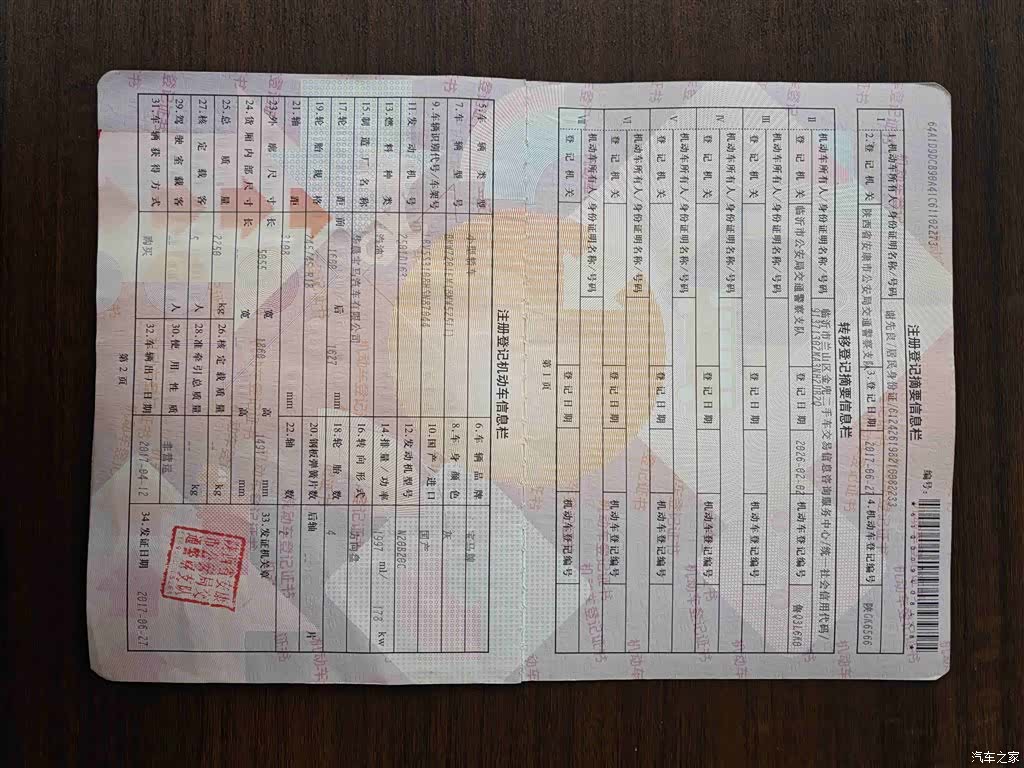 注册登记摘要信息栏
编号:
I
1.机动车所有人/身份证明名称/号码 谢先良/居民身份证/612426198210082233
2.登记机关 陕西省安康市公安局交通警察支队 3.登记日期 2017-06-27 4.机动车登记编号 陕GK6566
转移登记摘要信息栏
II 机动车所有人/身份证明名称/号码 临沂市兰山区金兜二手车交易信息咨询服务中心/统一社会信用代码/
登记机关 临沂市公安局交通警察支队 登记日期 机动车登记编号 鲁Q3L6K8
III 机动车所有人/身份证明名称/号码
登记机关 登记日期 机动车登记编号
IV 机动车所有人/身份证明名称/号码
登记机关 登记日期 机动车登记编号
V 机动车所有人/身份证明名称/号码
登记机关 登记日期 机动车登记编号
VI 机动车所有人/身份证明名称/号码
登记机关 登记日期 机动车登记编号
VII 机动车所有人/身份证明名称/号码
登记机关 登记日期 机动车登记编号
第1页
注册登记机动车信息栏
5.车辆类型 小型轿车 6.车辆品牌 宝马牌
7.车辆型号 8.车身颜色 灰
9.车辆识别代号/车架号 10.国产/进口 国产
11.发动机号 12.发动机型号 N20B20C
13.燃料种类 汽油 14.排量/功率 1997 ml/ 178 kw
15.制造厂名称 华晨宝马汽车有限公司 16.转向形式 方向盘
17.轮距 前 1600 后 1627 mm 18.轮胎数 4
19.轮胎规格 20.钢板弹簧片数 后轴 片
21.轴距 3108 mm 22.轴数
23.外廓尺寸 长 5055 宽 1868 高 1491 mm 33.发证机关章
24.货厢内部尺寸 长 宽 高 mm
25.总质量 2250 kg 26.核定载质量 kg
27.核定载客 5 人 28.准牵引总质量 kg
29.驾驶室载客 人 30.使用性质 非营运
31.车辆获得方式 购买 32.车辆出厂日期 2017-04-12 34.发证日期 2017-06-27
第2页
汽车之家